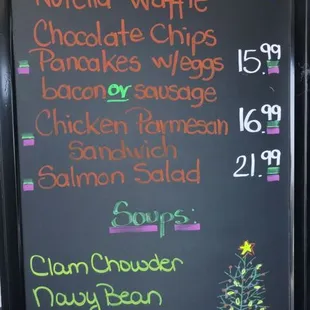 Nutella Waffle
Chocolate Chips
Pancakes w/eggs 15.99
bacon or sausage
Chicken Parmesan 16.99
Sandwich
Salmon Salad 21.99
Soups:
Clam Chowder
Navy Bean